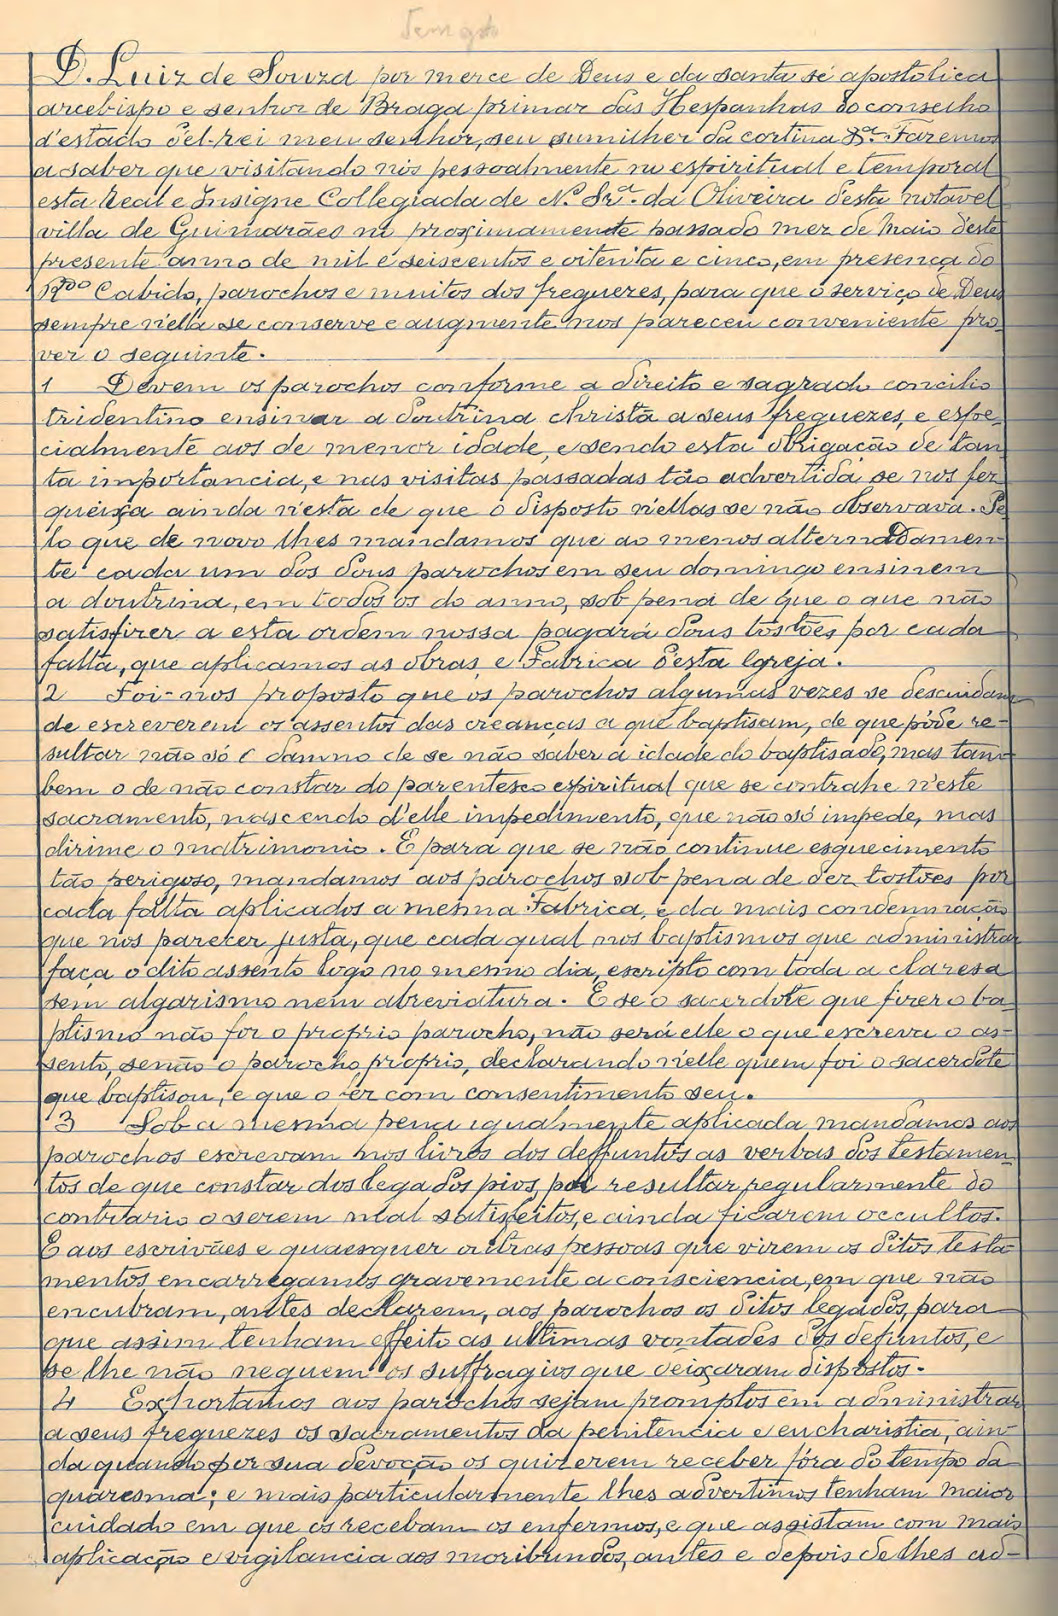 D. Luiz de Souza por merce de Deus e da santa sé apostolica
arcebispo e senhor de Braga primaz das Hespanhas do conselho
d'estado d'el-rei meu senhor, seu sumilher da cortina &ª. Fazemos
a saber que visitando nós pessoalmente no espiritual e temporal
esta Real e Insigne Collegiada de N. Srª. da Oliveira d'esta notavel
villa de Guimarães no proximamente passado mez de Maio d'este
presente anno de mil e seiscentos e oitenta e cinco, em presença do
Rdo Cabido, parochos e muitos dos freguezes, para que o serviço de Deus
sempre n'ella se conserve e augmente nos pareceu conveniente pro-
ver o seguinte.
1 Devem os parochos conforme a direito e sagrado concilio
tridentino ensinar a doutrina christã a seus freguezes, e espe-
cialmente aos de menor idade, e sendo esta obrigação de tan
ta importancia, e nas visitas passadas tão advertida se nos fez
queixa ainda n'esta de que o disposto n'ellas se não observava. Pe
lo que de novo lhes mandamos que ao menos alternadamen-
te cada um dos dous parochos em seu domingo ensinem
a doutrina, em todos os do anno, sob pena de que o que não
satisfizer a esta ordem nossa pagará dous tostões por cada
falta, que aplicamos as obras e Fabrica d'esta Igreja.
2 Foi-nos proposto que os parochos algumas vezes se descuidam
de escreverem os assentos das creanças a que baptisam, de que póde re-
sultar não só o damno de se não saber a idade do baptisado, mas tam-
bem o de não constar do parentesco espiritual que se contrahe n'este
sacramento, nascendo d'elle impedimento, que não só impede, mas
dirime o matrimonio. E para que se não continue esquecimento
tão perigoso, mandamos aos parochos sob pena de dez tostões por
cada falta aplicados a mesma Fabrica, e da mais condemnação
que nos parecer justa, que cada qual nos baptismos que administrar
faça o dito assento logo no mesmo dia, escripto com toda a claresa
sem algarismo nem abreviatura. E se o sacerdote que fizer o ba-
ptismo não for o proprio parocho, não será elle o que escreva o as-
sento, senão o parocho proprio, declarando n'elle quem foi o sacerdote
que baptisou, e que o fez com consentimento seu.
3 Sob a mesma pena igualmente aplicada mandamos aos
parochos escrevam nos livros dos deffuntos as verbas dos testamen-
tos de que constar dos legados pios, por resultar regularmente do
contrario o serem mal satisfeitos, e ainda ficarem occultos.
E aos escrivães e quaesquer outras pessoas que virem os ditos testa-
mentos encarregamos gravemente a consciencia, em que não
encubram, antes declarem, aos parochos os ditos legados, para
que assim tenham effeito as ultimas vontades dos defuntos, e
se lhe não neguem os suffragios que deixaram dispostos.
4 Exhortamos aos parochos sejam promptos em administrar
a seus freguezes os sacramentos da penitencia e eucharistia, ain-
da quando por sua devoção os quizerem receber fóra do tempo da
quaresma; e mais particularmente lhes advertimos tenham maior
cuidado em que os recebam os enfermos, e que assistam com mais
aplicação e vigilancia aos moribundos, antes e depois de lhes ad-